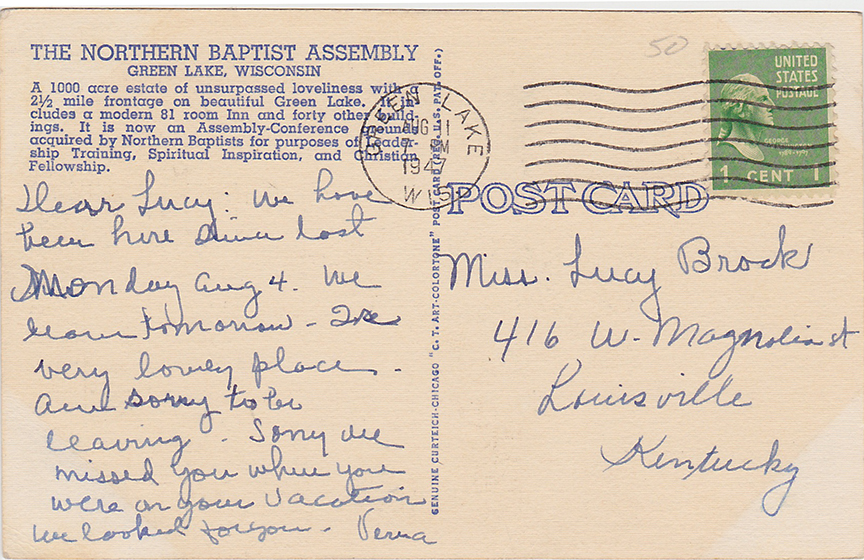 THE NORTHERN BAPTIST ASSEMBLY
GREEN LAKE, WISCONSIN
A 1000 acre estate of unsurpassed loveliness with a
2½ mile frontage on beautiful Green Lake. It in-
cludes a modern 81 room Inn and forty other build-
ings. It is now an Assembly-Conference grounds
acquired by Northern Baptists for purposes of Leader-
ship Training, Spiritual Inspiration, and Christian
Fellowship.
Dear Lucy: We have
been here since last
Monday Aug 4. We
leave tomorrow -
very lovely place -
Am sorry to be
leaving - Sorry we
missed you when you
were on your vacation
we looked for you - Verna
GENUINE CURTEICH-CHICAGO "C. T. ART-COLORTONE" POST CARD (REG. U.S. PAT. OFF.)
GREEN LAKE
AUG 11
PM
1947
WIS.
50
UNITED
STATES
POSTAGE
GEORGE
WASHINGTON
1 CENT 1
POST CARD
Miss. Lucy Brock
416 W. Magnolia st
Louisville
Kentucky